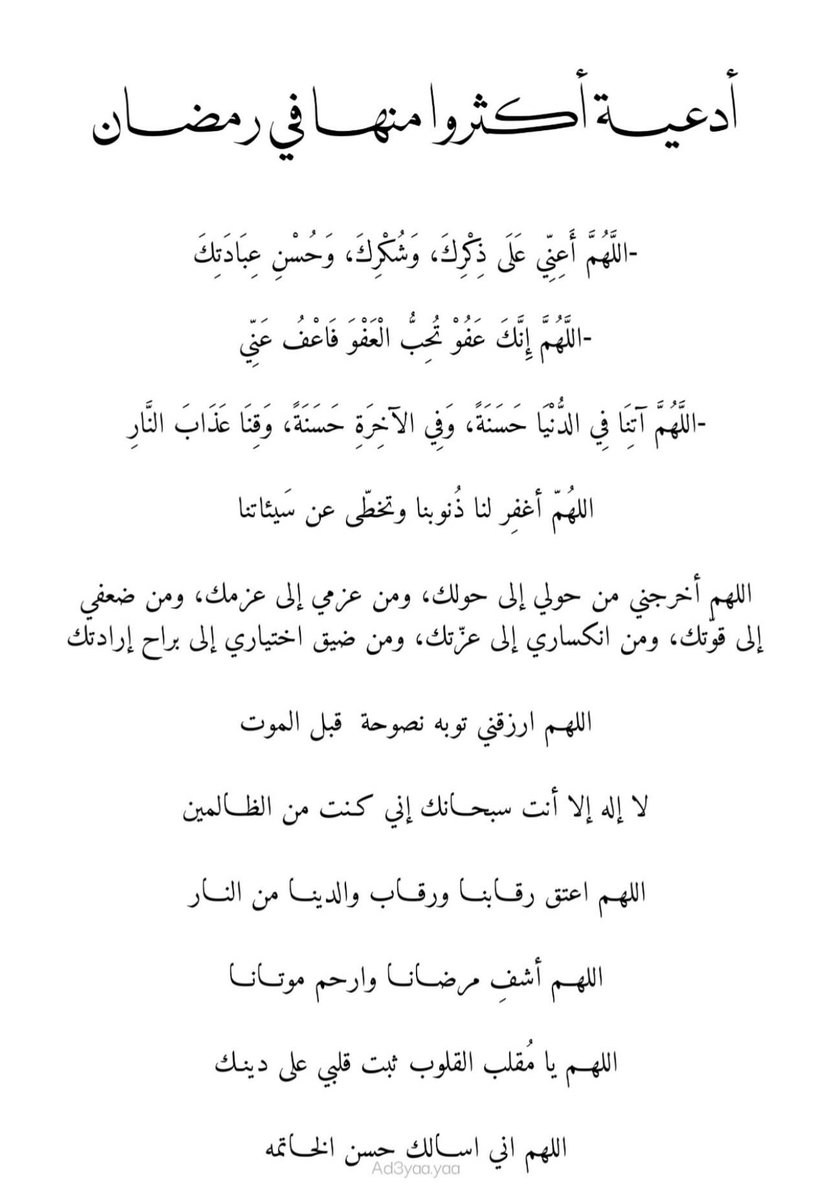 أدعية أكثروا منها في رمضان
-اللَّهُمَّ أَعِنِّي عَلَى ذِكْرِكَ، وَشُكْرِكَ، وَحُسْنِ عِبَادَتِكَ
-اللَّهُمَّ إِنَّكَ عَفُوْ تُحِبُّ الْعَفْوَ فَاعْفُ عَنِّي
-اللَّهُمَّ آتِنَا فِي الدُّنْيَا حَسَنَةً، وَفِي الآخِرَةِ حَسَنَةً، وَقِنَا عَذَابَ النَّارِ
اللهُمّ أغفِر لنا ذُنوبنا وتخطّى عن سَيئاتنا
اللهم أخرجني من حولي إلى حولك، ومن عزمي إلى عزمك، ومن ضعفي
إلى قوّتك، ومن انكساري إلى عزّتك، ومن ضيق اختياري إلى براح إرادتك
اللهم ارزقني توبه نصوحة قبل الموت
لا إله إلا أنت سبحانك إني كنت من الظالمين
اللهم اعتق رقابنا ورقاب والدينا من النار
اللهم أشفِ مرضانا وارحم موتانا
اللهم يا مُقلب القلوب ثبت قلبي على دينك
اللهم اني اسالك حسن الخاتمه
Ad3yaa.yaa